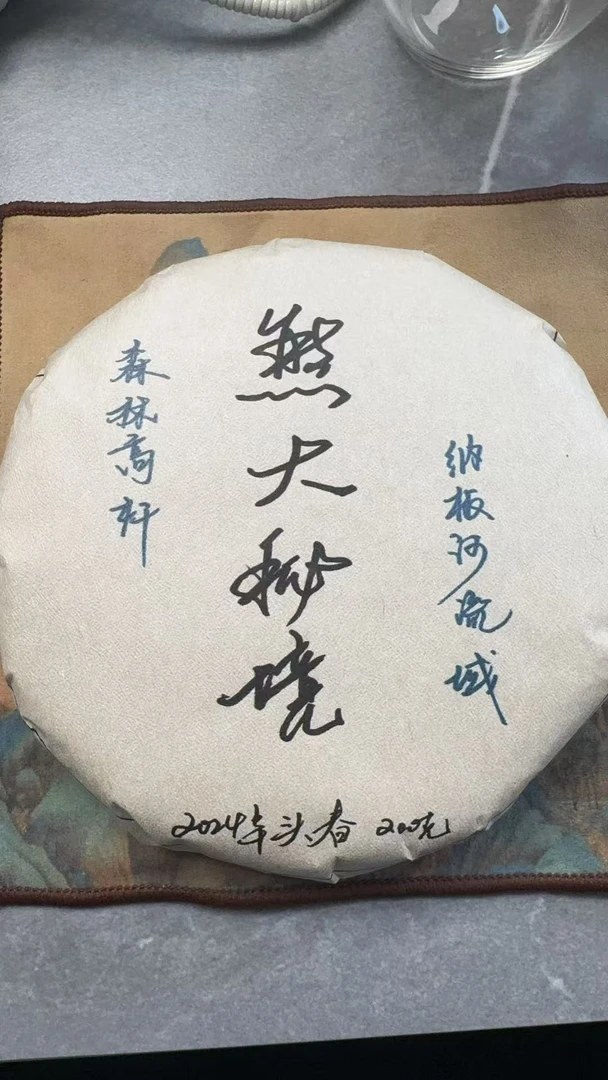 纳板河流域
熊大秘境
森林高杆
2024年头春 200克